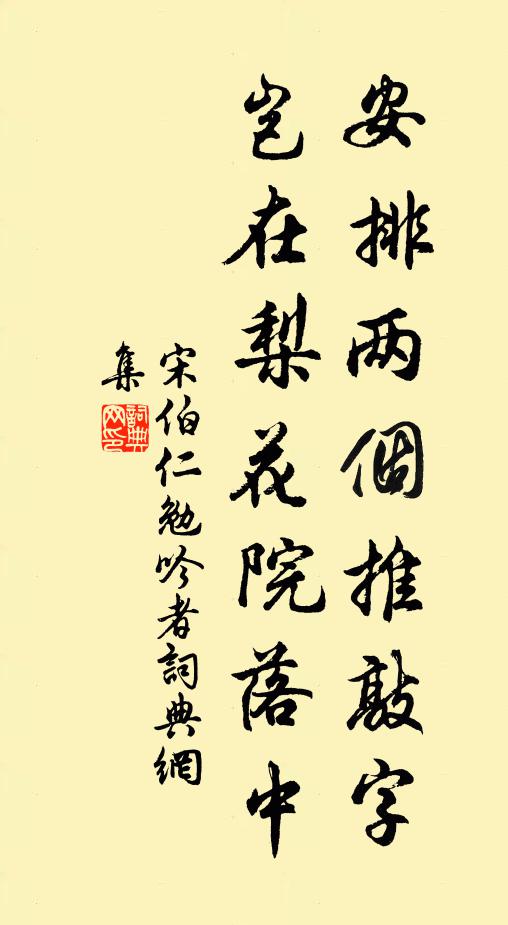 安排两個推敲字
豈在梨花院落中
宋伯仁勉吟者詞典網
集
詞典网印